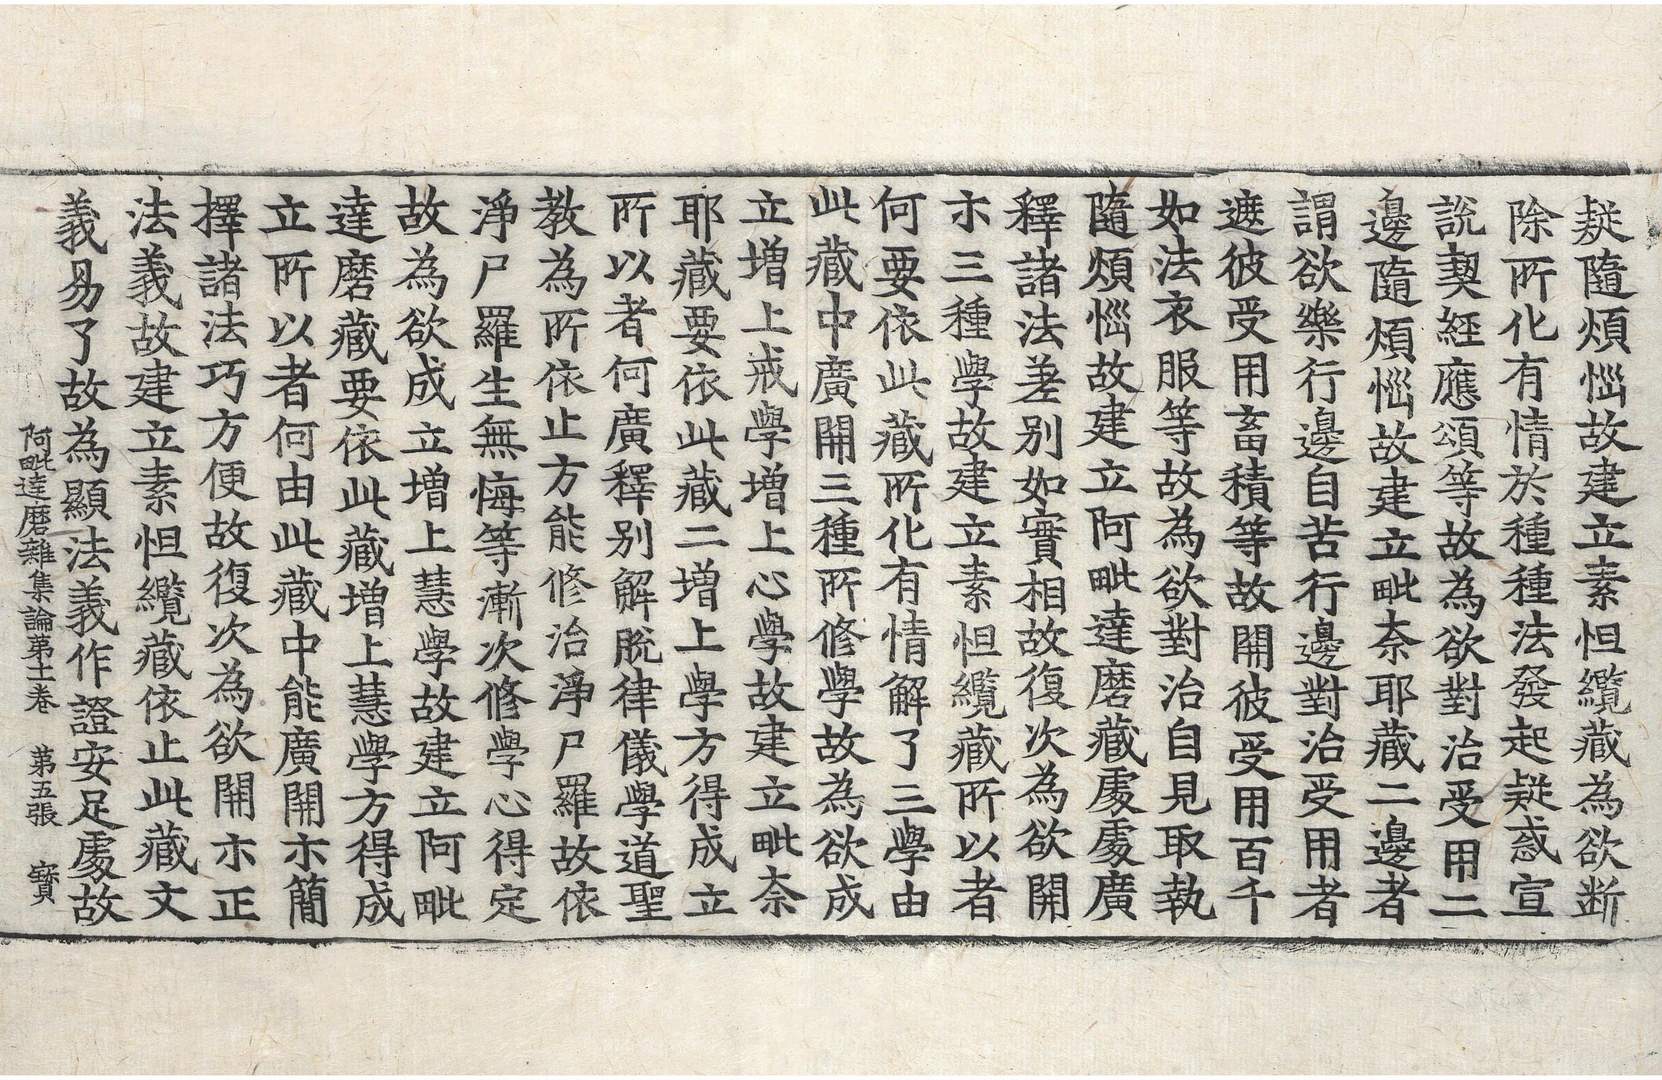 疑隨煩惱故建立素怛纜藏為欲断
除所化有情於種種法發起疑惑宣
說契經應頌等故為欲對治受用二
邊隨煩惱故建立毗奈耶藏二邊者
謂欲樂行邊自苦行邊對治受用者
遮彼受用畜積等故開彼受用百千
如法衣服等故為欲對治自見取執
隨煩惱故建立阿毗達磨藏處處廣
釋諸法差別如實相故復次為欲開
示三種學故建立素怛纜藏所以者
何要依此藏所化有情解了三學由
此藏中廣開三種所修學故為欲成
立增上戒學增上心學故建立毗奈
耶藏要依此藏二增上學方得成立
所以者何廣釋別解脫律儀學道聖
教為所依止方能修治淨尸羅故依
淨尸羅生無悔等漸次修學心得定
故為欲成立增上慧學故建立阿毗
達磨藏要依此藏增上慧學方得成
立所以者何由此藏中能廣開示簡
擇諸法巧方便故復次為欲開示正
法義故建立素怛纜藏依止此藏文
義易了故為顯法義作證安足處故
阿毗達磨雜集論苐十一卷　苐五張　寶